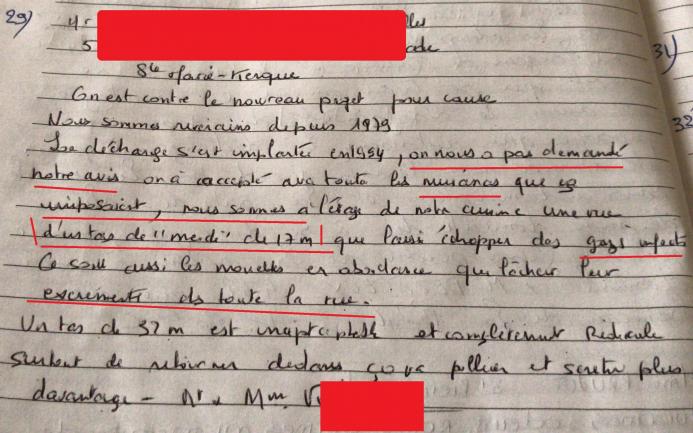 29)
4
5
31)
32
Ste Marie-Kerque
On est contre le nouveau projet pour cause
Nous sommes riverains depuis 1979
La décharge s'est implantée en 1994, on nous a pas demandé
notre avis on a accepté avec toute les nuisances que ça
imposait, nous sommes a l'étage de notre cuisine une vue
d'un tas de "merde" de 17 m que laissi échapper des gazs infects
Ce sont aussi les mouettes en abondance qui lâcher leur
excrements ds toute la rue.
Un tas de 37 m est inacceptable et complètement Ridicule
surtout de retourner dedans ça va polluer et sentir plus
davantage - Mr & Mme